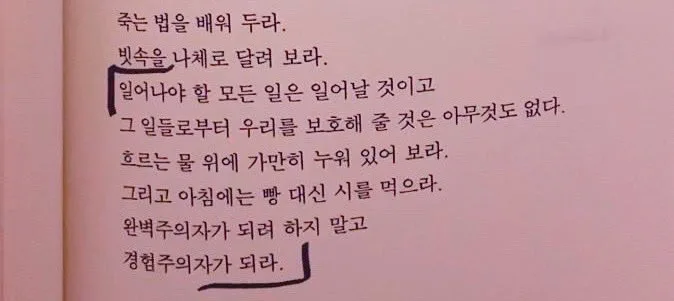 죽는 법을 배워 두라.
빗속을 나체로 달려 보라.
일어나야 할 모든 일은 일어날 것이고
그 일들로부터 우리를 보호해 줄 것은 아무것도 없다.
흐르는 물 위에 가만히 누워 있어 보라.
그리고 아침에는 빵 대신 시를 먹으라.
완벽주의자가 되려 하지 말고
경험주의자가 되라.